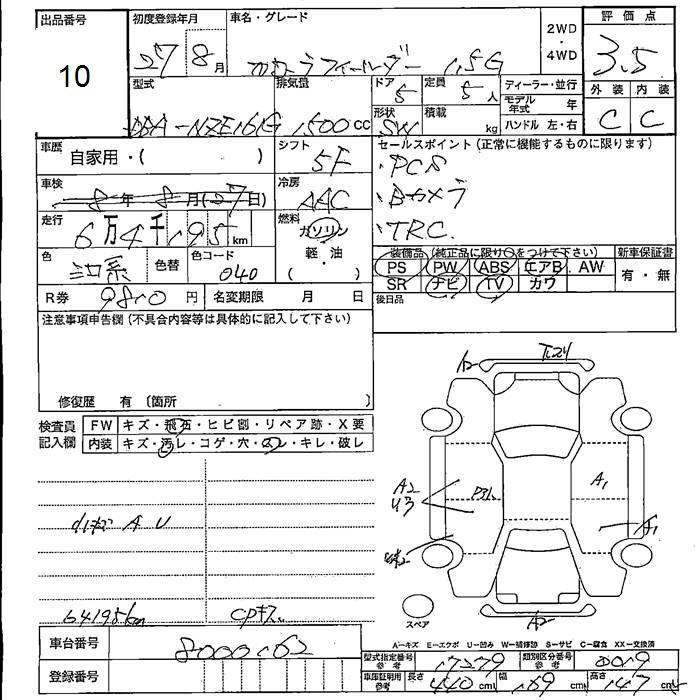 出品番号 初度登録年月 車名・グレード 2WD 4WD 評価点
10 27 8月 カローラフィールダー 1.5G 3.5
型式 排気量 ドア 5 定員 5人 ディーラー・並行 外装 内装
モデル年式 年
DBA-NZE161G 1,500cc 形状 SW 積載 kg ハンドル 左・右 C C
車歴 自家用・( ) シフト 5F セールスポイント(正常に機能するものに限ります)
・PCS
車検 8年8月(27日) 冷房 AAC ・Bカメラ
走行 6万4千195km 燃料 ガソリン 軽・油 ( ) ・TRC
色 シロ系 色替 色コード 040 装備品(純正品に限り○をつけて下さい) 新車保証書
PS PW ABS エアB AW 有・無
SR ナビ TV カワ
R券 9810円 名変期限 月 日 後日品
注意事項申告欄(不具合内容等は具体的に記入して下さい)
修復歴 有〔箇所 〕
検査員記入欄 FW キズ・飛石・ヒビ割・リペア跡・X要
内装 キズ・汚レ・コゲ・穴・・キレ・破レ
A2
U3
A1
A1
A U
64195km CPキズ
スペア
A-キズ E-エクボ U-凹み W-補修跡 S-サビ C-腐食 XX-交換済
車台番号 8000162
型式指定番号 参考 17279 類別区分番号 参考 0019
登録番号
車庫証明用 参考 長さ 440cm 幅 169cm 高さ 147cm